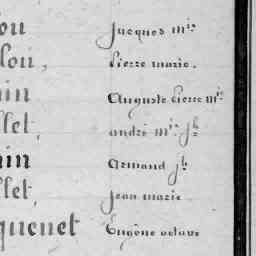 ou Jacques m^ie
lou, Pierre marie.
in Auguste Pierre m^ie
llet, andré m^ie j^h
in Armand j^h
llet, Jean marie
quenet Eugène octave